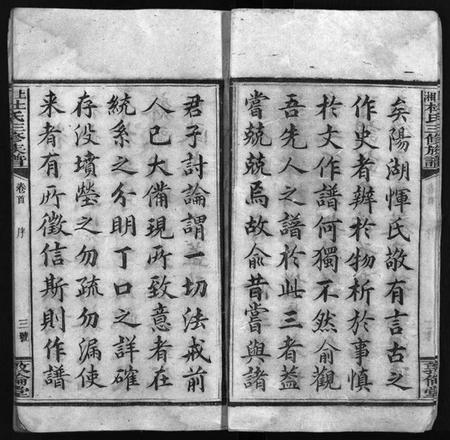 矣陽湖惲氏敬有言古之
作史者辨於物析於事慎
於文作譜何獨不然俞觀
吾先人之譜於此三者蓋
嘗兢兢焉故俞昔嘗與諸
君子討論謂一切法戒前
人已大備現所致意者在
統系之分明丁口之詳確
存没墳塋之勿疏勿漏使
來者有所徵信斯則作譜
杜氏三修族譜
卷首
序
三號
敦倫堂